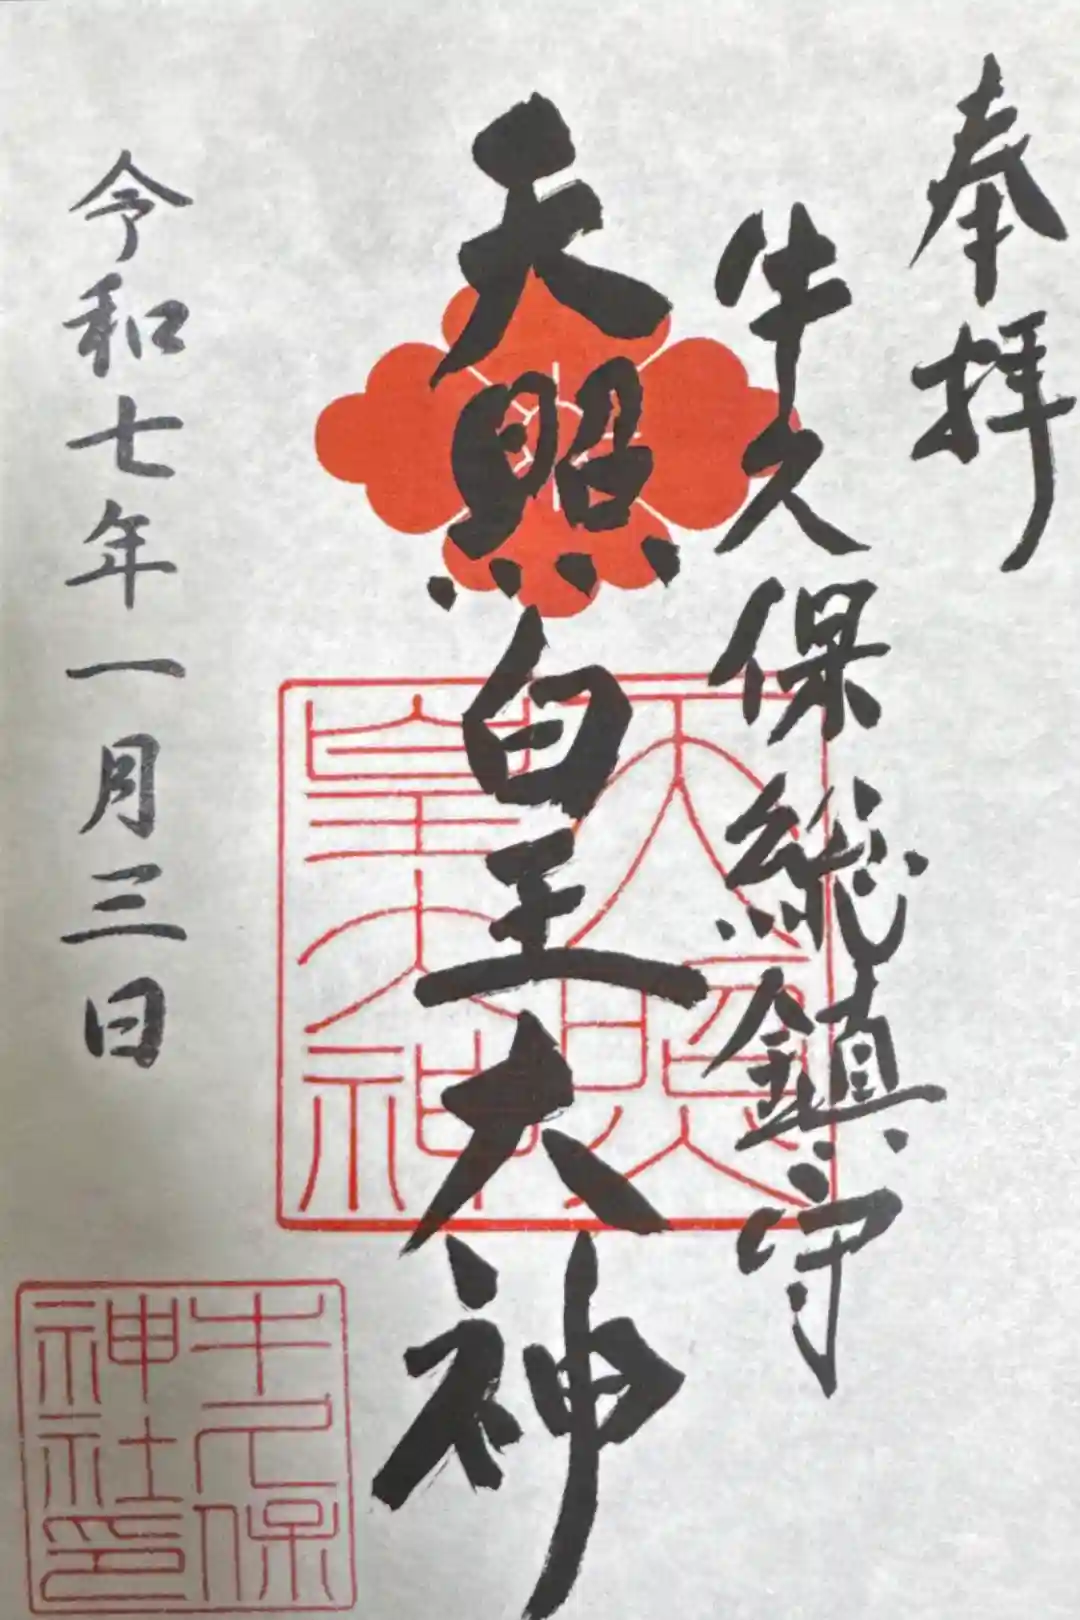 奉拝
牛久保総鎮守
天照皇大神
令和七年一月三日
天照
皇大神
牛久保
神社印